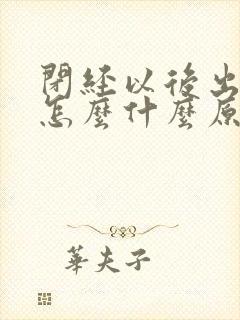 閉經以後出
怎麼什麼原
華夫子